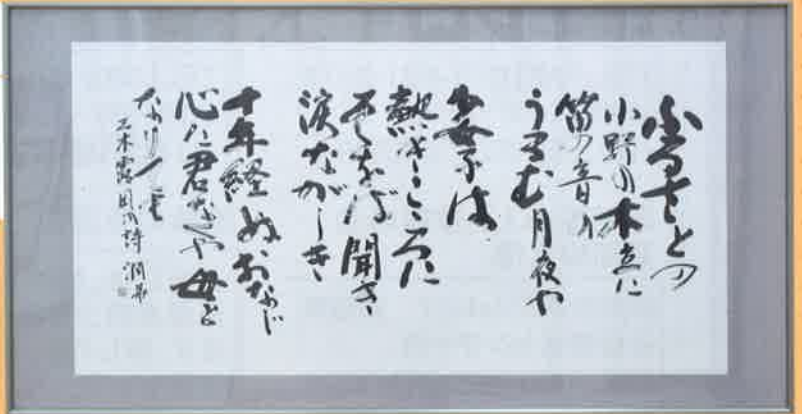 ふるさとの
小野の木立に
笛の音の
うるむ月夜や
少女子は
熱きこころに
そをば聞き
涙ながしき
十年経ぬおなじ
心に君なくや母と
なりても
三木露風の詩